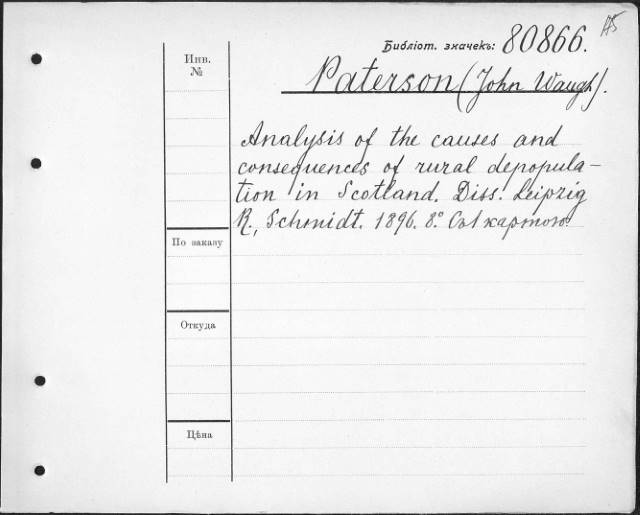 175
Библіот. значекъ: 80866.
Инв. №
Paterson (John Waugh).
Analysis of the causes and
consequences of rural depopula-
tion in Scotland. Diss. Leipzig
R., Schmidt. 1896. 8° Съ 1 картою.
По заказу
Откуда
Цѣна